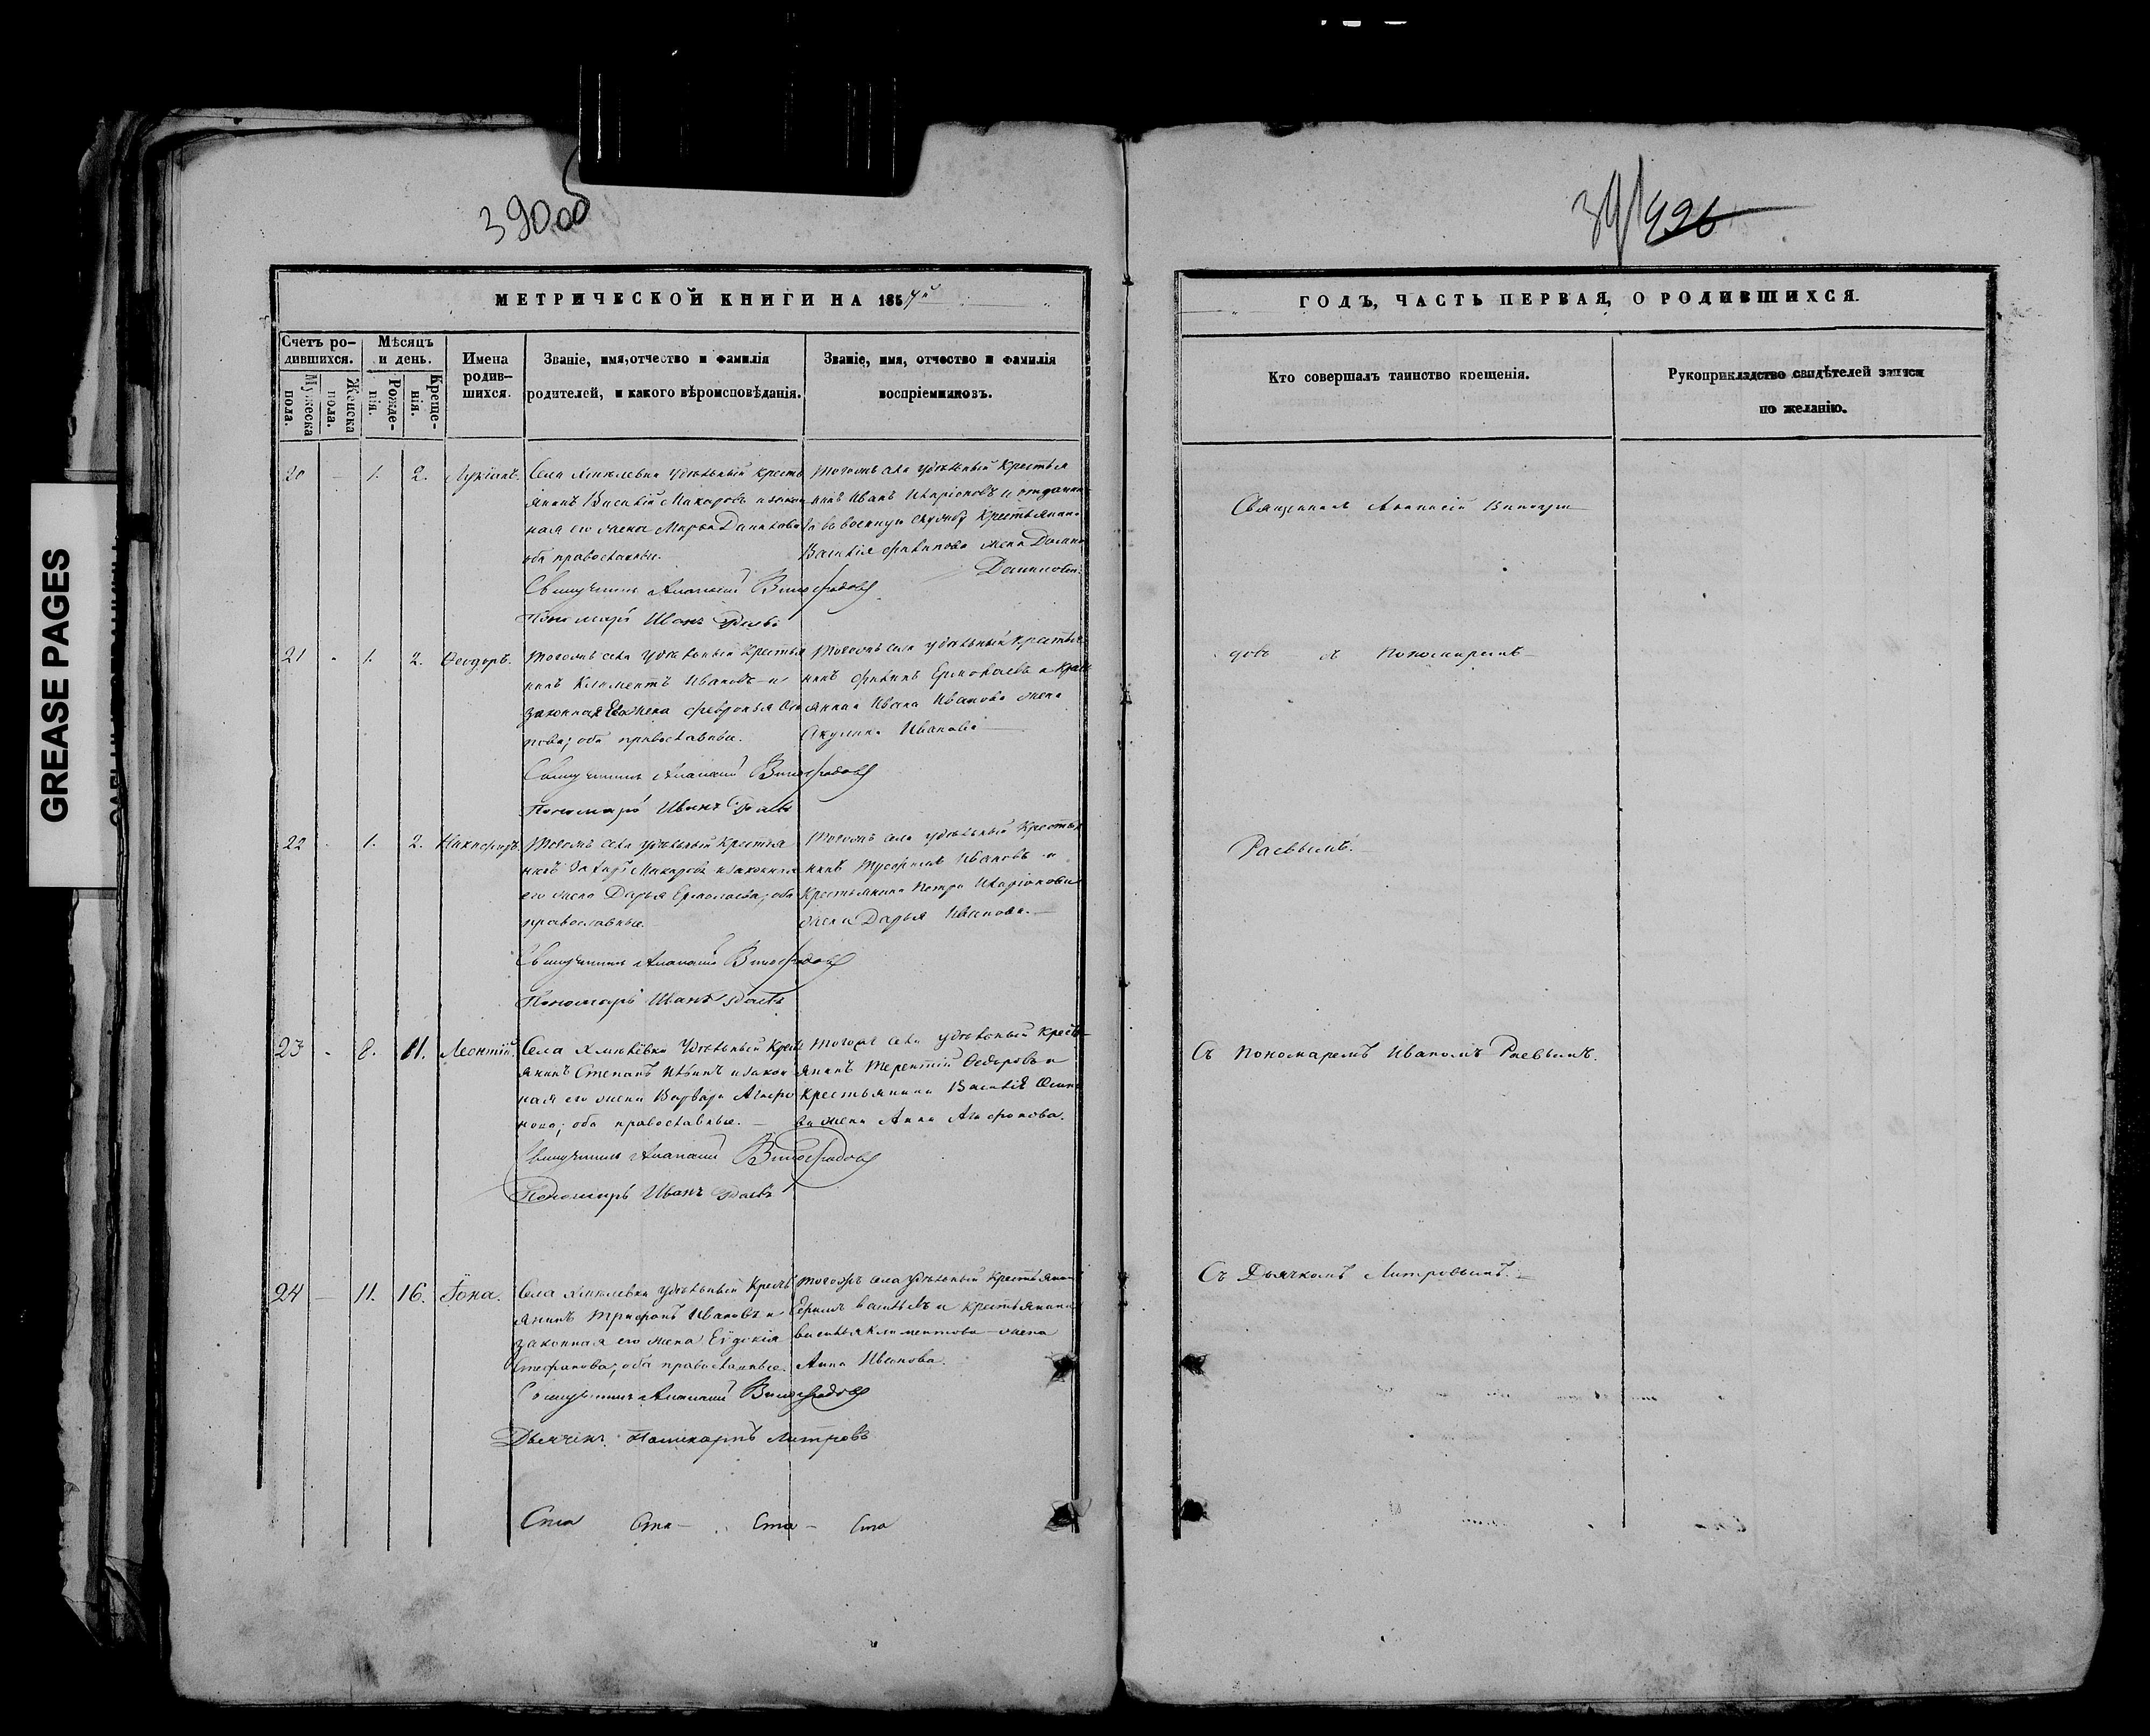 390об
391 496
МЕТРИЧЕСКОЙ КНИГИ НА 1857й
ГОДЪ, ЧАСТЬ ПЕРВАЯ, О РОДИВШИХСЯ.
Счетъ ро-
дившихся.
Мужеска
пола.
Женска
пола.
Мѣсяцъ
и день.
Рожде-
нія.
Креще-
нія.
Имена
родив-
шихся.
Званіе, имя, отчество и фамилія
родителей, и какого вѣроисповѣданія.
Званіе, имя, отчество и фамилія
воспріемниковъ.
Кто совершалъ таинство крещенія.
Рукоприкладство свидѣтелей записи
по желанію.
20 – 1. 2. Лукіанъ.
Села Хмѣлевки Удѣльный кресть
янинъ Василій Макаровъ и закон
ная его жена Марѳа Данилова
оба православные.
Священникъ Аѳанасій Виноградовъ
Пономарь Иванъ Раевъ
Тогожъ села удѣльный Крестья
нинъ Иванъ Иларіоновъ и отданна
го въ военную службу крестьянина
Василія Филипова жена
Данилова.
Священникъ Аѳанасій Виногра
21 1. 2. Ѳеодоръ.
Тогожъ села Удѣльный Крестья
нинъ Климентъ Ивановъ и
законная Его жена Февронія Оси
пова; оба православные.
Священникъ Аѳанасій Виноградовъ
Пономарь Иванъ Раевъ
Тогожъ села удѣльный Крестья
нинъ Филипъ Ермолаевъ и Крес
янина Ивана Иванова жена
Акулина Иванова
довъ съ Пономаремъ
22 1. 2. Никифоръ.
Тогожъ села удѣльный Крестья
нинъ Захаръ Макаровъ и законная
его жена Дарья Ермолаева; оба
православные.
Священникъ Аѳанасій Виноградовъ
Пономарь Иванъ Раевъ
Тогожъ села удѣльный Крестья
нинъ Ивановъ и
Крестьянина Петра Иларіонова
жена Дарья Иванова.
Раевымъ.
23 8. 11. Леонтій.
Села Хмѣлёвки Удѣльный Крест
янинъ Степанъ Ильинъ и закон
ная его жена Варвара Агафо
нова; оба православные.
Священникъ Аѳанасій Виноградовъ
Пономарь Иванъ Раевъ
Тогожъ села удѣльный крест
янинъ Терентій Ѳедоровъ и
Крестьянина Василія Осипо
ва жена Анна Агафонова.
Съ Пономаремъ Иваномъ Раевымъ.
24 – 11. 16. Іона.
Села Хмѣлевки удѣльный Кресть
янинъ Трифонъ Ивановъ и
законная его жена Евдокія
Стефанова; оба православные.
Священникъ Аѳанасій Виноградовъ
Дьячекъ Поликарпъ Митровъ
Тогожъ села удѣльный Крестьянинъ
Ермилъ Васильевъ и крестьянина
Василья Климентова жена
Анна Иванова.
Съ Дьячкомъ Митровымъ.
GREASE PAGES